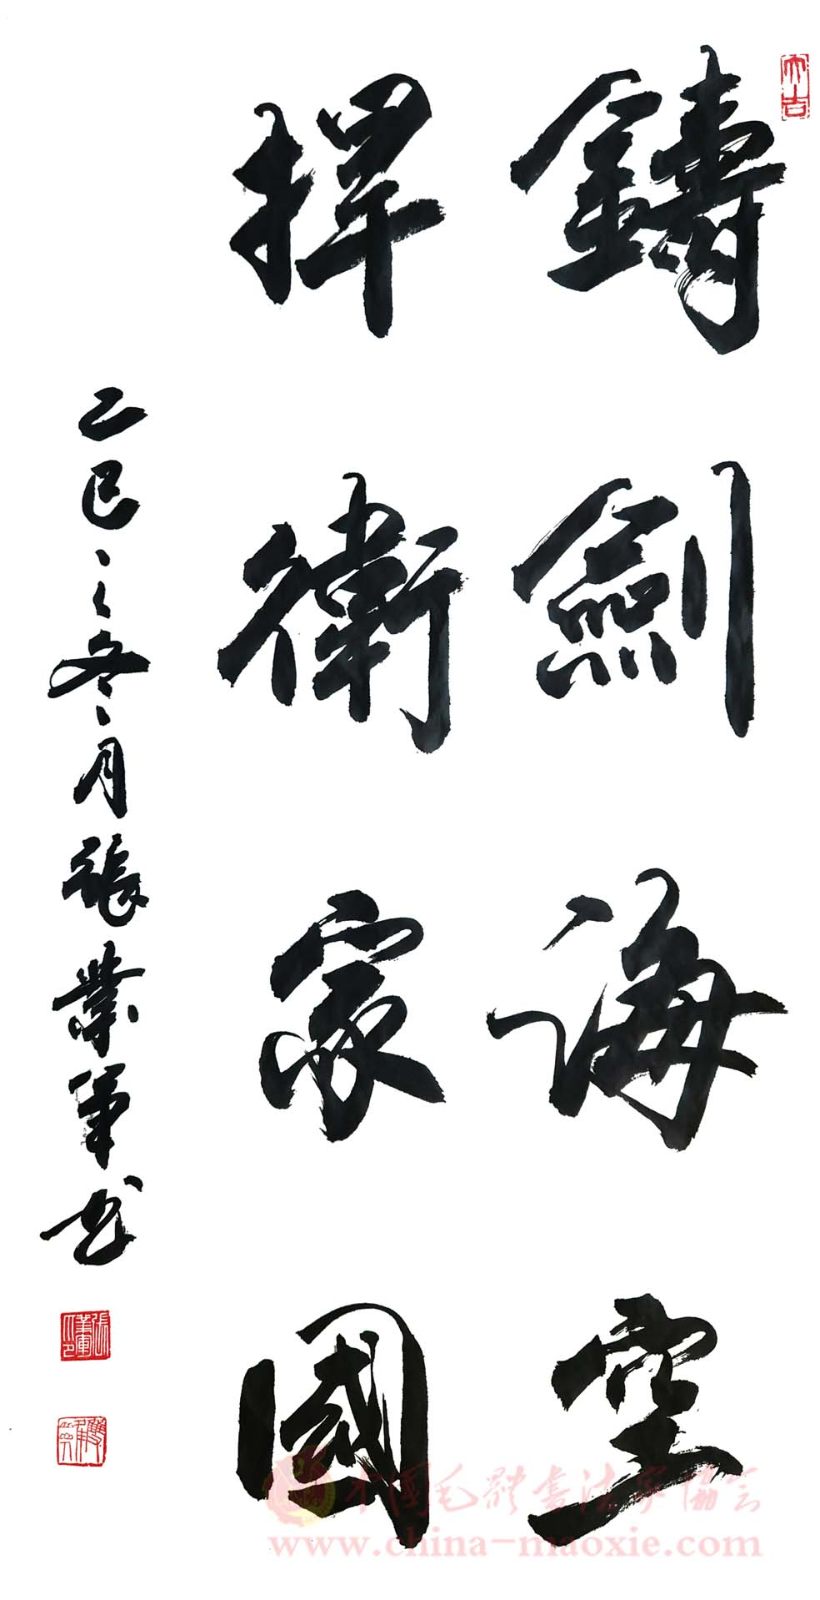 鑄劍海空
捍衛家國
乙巳之冬月張業軍书
大吉
張業軍印
中國毛體書法家協會
www.china-maoxie.com